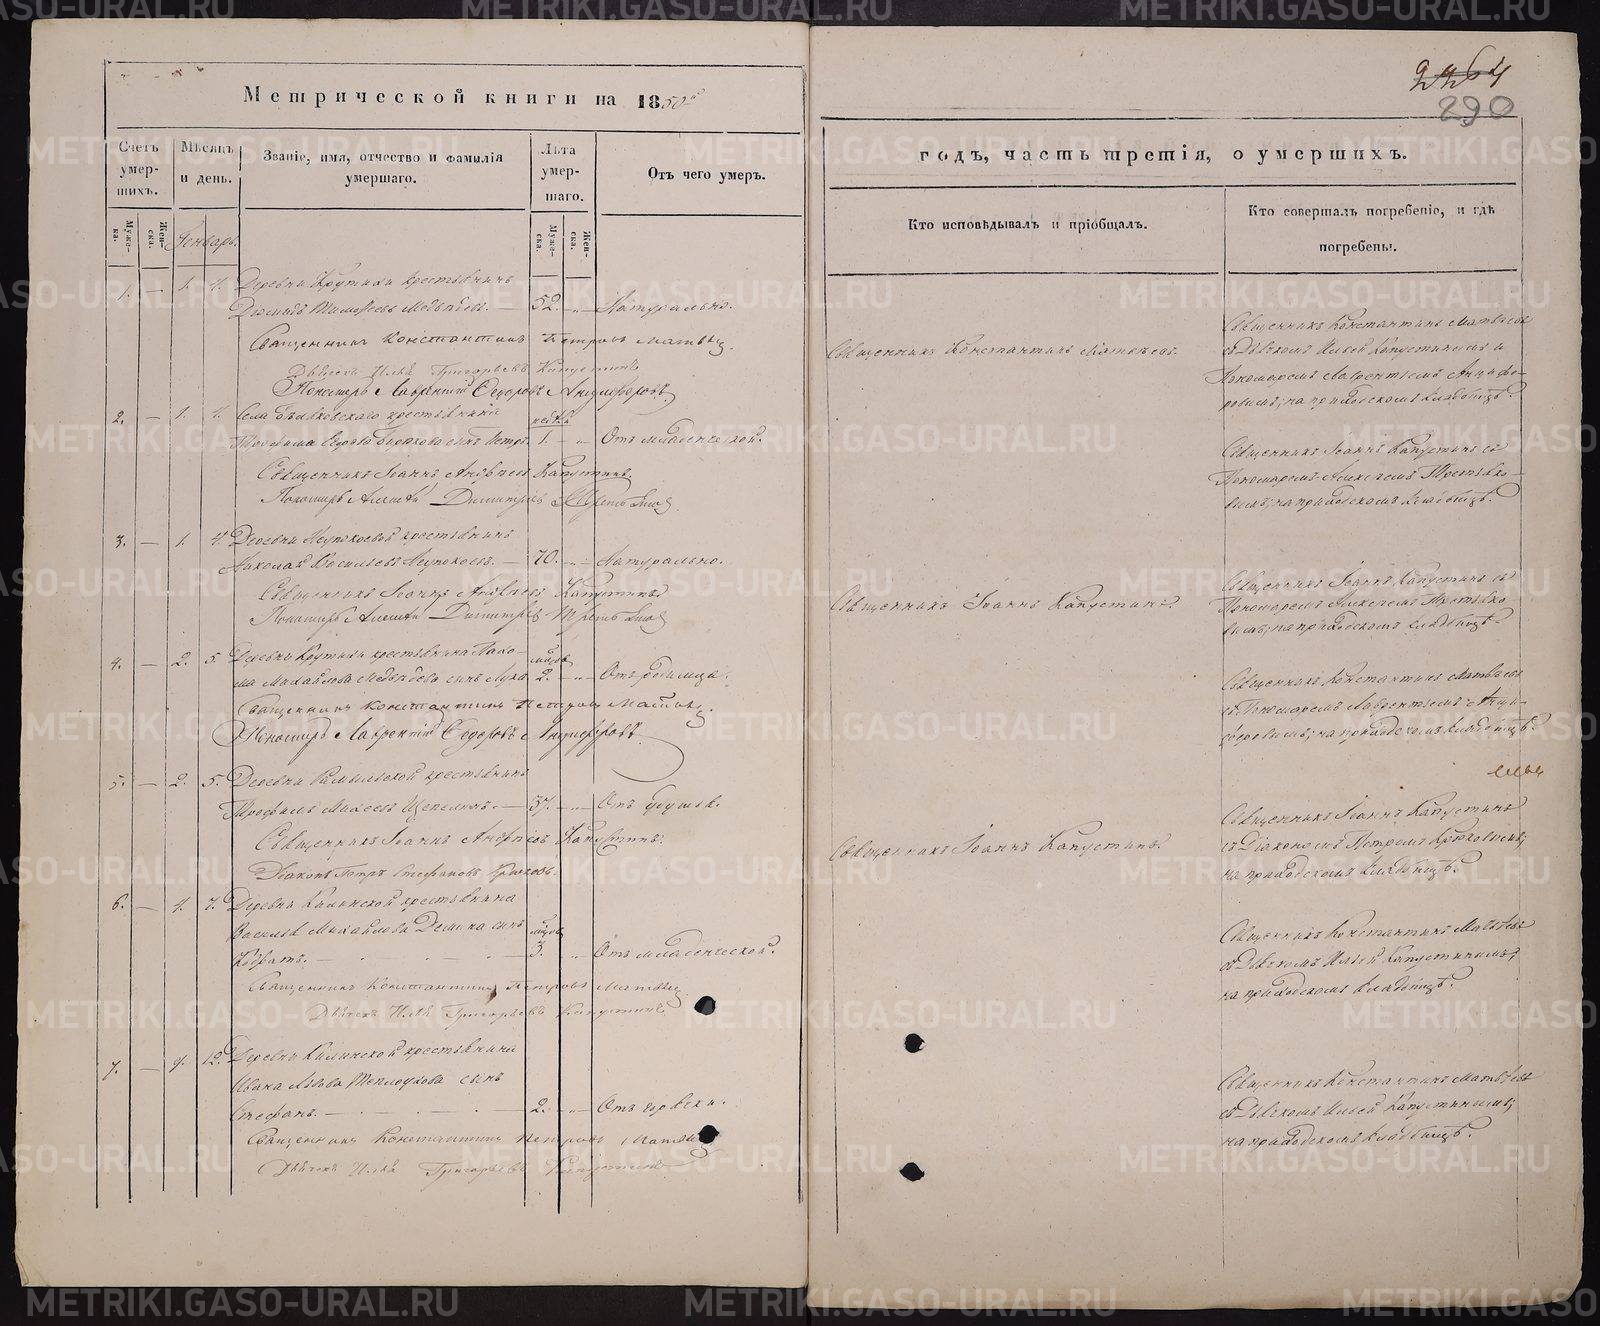 Метрической книги на 1850й
Счетъ умер-шихъ.
Мѣсяцъ и день.
Званіе, имя, отчество и фамилія умершаго.
Лѣта умер-шаго.
Отъ чего умеръ.
Муже-ска.
Жен-ска.
Генварь.
Муже-ска.
Жен-ска.
1. — 1. 4. Деревни Крутихи крестьянинъ
Тимофеевъ Медвѣдевъ. — 52. Натурально.
Священникъ Константинъ Петровъ Матвѣевъ.
Дьячекъ Илья Григорьевъ Капустинъ
Пономарь Лаврентій Федоровъ Анциферовъ
2. — 1. 4. Села крестьянина недѣл.
Трофима сынъ Петръ. 1. Отъ младенческой.
Священникъ Іоаннъ Андреевъ Капустинъ
Пономарь Алексѣй Димитріевъ Третьяковъ
3. — 1. 4. Деревни Неупокоевой крестьянинъ
Николай Васильевъ Неупокоевъ. — 70. Натурально.
Священникъ Іоаннъ Андреевъ Капустинъ
Пономарь Алексѣй Димитріевъ Третьяковъ
4. — 2. 5. Деревни Крутихи крестьянина Пахо- мѣсяц.
ма Михайлова Медвѣдева сынъ Лука 2. Отъ родимца.
Священникъ Константинъ Петровъ Матвѣевъ.
Пономарь Лаврентій Федоровъ Анциферовъ
5. — 2. 5. Деревни крестьянинъ
Трофимъ Щепелинъ. — 37. Отъ удушья.
Священникъ Іоаннъ Андреевъ Капустинъ.
Діаконъ Петръ Стефановъ Крюковъ.
6. — 4. 7. Деревни Калинской крестьянина
Василья Михайлова Демина сынъ мѣсяц.
Кодратъ. — 3. Отъ младенческой.
Священникъ Константинъ Петровъ Матвѣевъ
Дьячекъ Илья Григорьевъ Капустинъ
7. — 9. 12. Деревни Калинской крестьянина
Ивана Львова Теплоухова сынъ
Стефанъ. — 2. Отъ
Священникъ Константинъ Петровъ Матвѣевъ
Дьячекъ Илья Григорьевъ Капустинъ
290
годъ, часть третія, о умершихъ.
Кто исповѣдывалъ и пріобщалъ.
Кто совершалъ погребеніе, и гдѣ погребены.
Священникъ Константинъ Матвѣевъ.
Священникъ Константинъ Матвѣевъ
съ Дьячкомъ Ильей Капустинымъ и
Пономаремъ Лаврентьемъ Анцифе-
ровымъ; на приходскомъ кладбищѣ.
Священникъ Іоаннъ Капустинъ съ
Пономаремъ Алексѣемъ Третьяко-
вымъ; на приходскомъ кладбищѣ.
Священникъ Іоаннъ Капустинъ.
Священникъ Іоаннъ Капустинъ съ
Пономаремъ Алексѣемъ Третьяко-
вымъ; на приходскомъ кладбищѣ.
Священникъ Константинъ Матвѣевъ
съ Пономаремъ Лаврентьемъ Анци-
феровымъ; на приходскомъ кладбищѣ.
Священникъ Іоаннъ Капустинъ.
Священникъ Іоаннъ Капустинъ
съ Діакономъ Петромъ Крюковымъ;
на приходскомъ кладбищѣ.
Священникъ Константинъ Матвѣевъ
съ Дьячкомъ Ильей Капустинымъ;
на приходскомъ кладбищѣ.
Священникъ Константинъ Матвѣевъ
съ Дьячкомъ Ильей Капустинымъ;
на приходскомъ кладбищѣ.
METRIKI.GASO-URAL.RU